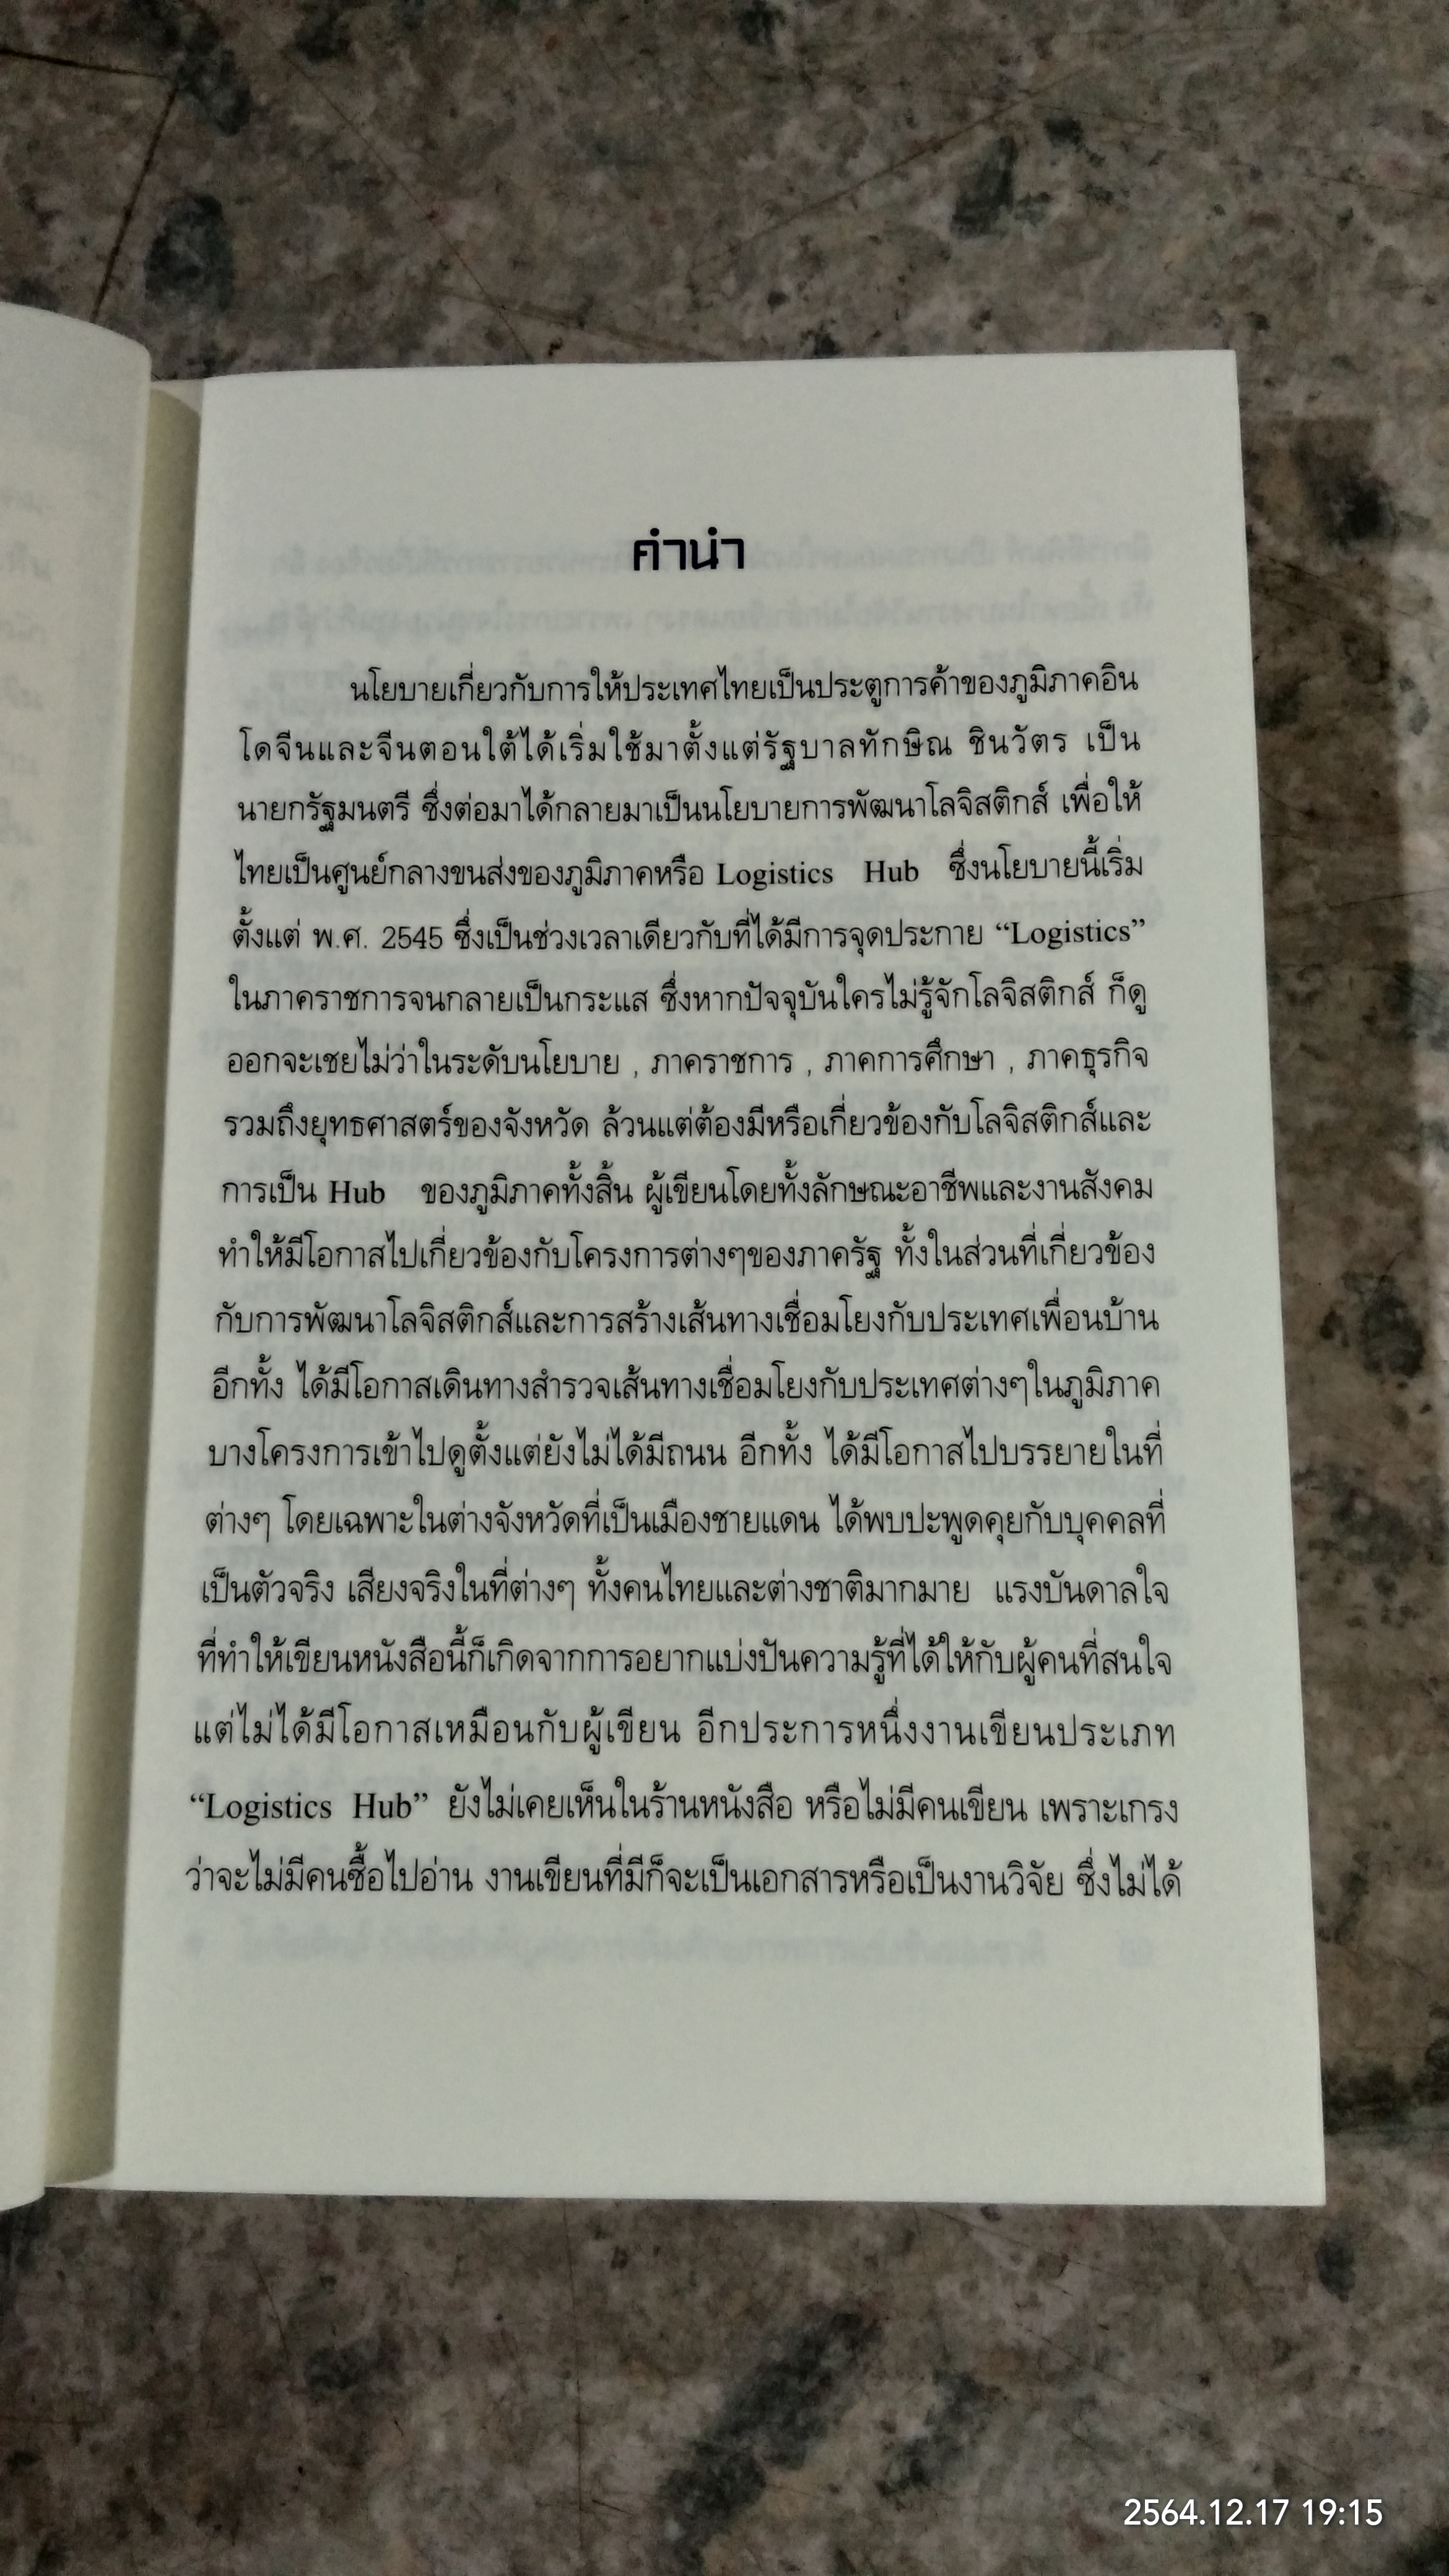 คำนำ
นโยบายเกี่ยวกับการให้ประเทศไทยเป็นประตูการค้าของภูมิภาคอิน
โดจีนและจีนตอนใต้ได้เริ่มใช้มาตั้งแต่รัฐบาลทักษิณ ชินวัตร เป็น
นายกรัฐมนตรี ซึ่งต่อมาได้กลายมาเป็นนโยบายการพัฒนาโลจิสติกส์ เพื่อให้
ไทยเป็นศูนย์กลางขนส่งของภูมิภาคหรือ Logistics Hub ซึ่งนโยบายนี้เริ่ม
ตั้งแต่ พ.ศ. 2545 ซึ่งเป็นช่วงเวลาเดียวกับที่ได้มีการจุดประกาย “Logistics”
ในภาคราชการจนกลายเป็นกระแส ซึ่งหากปัจจุบันใครไม่รู้จักโลจิสติกส์ ก็ดู
ออกจะเชยไม่ว่าในระดับนโยบาย , ภาคราชการ , ภาคการศึกษา , ภาคธุรกิจ
รวมถึงยุทธศาสตร์ของจังหวัด ล้วนแต่ต้องมีหรือเกี่ยวข้องกับโลจิสติกส์และ
การเป็น Hub ของภูมิภาคทั้งสิ้น ผู้เขียนโดยทั้งลักษณะอาชีพและงานสังคม
ทำให้มีโอกาสไปเกี่ยวข้องกับโครงการต่างๆของภาครัฐ ทั้งในส่วนที่เกี่ยวข้อง
กับการพัฒนาโลจิสติกส์และการสร้างเส้นทางเชื่อมโยงกับประเทศเพื่อนบ้าน
อีกทั้ง ได้มีโอกาสเดินทางสำรวจเส้นทางเชื่อมโยงกับประเทศต่างๆในภูมิภาค
บางโครงการเข้าไปดูตั้งแต่ยังไม่ได้มีถนน อีกทั้ง ได้มีโอกาสไปบรรยายในที่
ต่างๆ โดยเฉพาะในต่างจังหวัดที่เป็นเมืองชายแดน ได้พบปะพูดคุยกับบุคคลที่
เป็นตัวจริง เสียงจริงในที่ต่างๆ ทั้งคนไทยและต่างชาติมากมาย แรงบันดาลใจ
ที่ทำให้เขียนหนังสือนี้ก็เกิดจากการอยากแบ่งปันความรู้ที่ได้ให้กับผู้คนที่สนใจ
แต่ไม่ได้มีโอกาสเหมือนกับผู้เขียน อีกประการหนึ่งงานเขียนประเภท
“Logistics Hub” ยังไม่เคยเห็นในร้านหนังสือ หรือไม่มีคนเขียน เพราะเกรง
ว่าจะไม่มีคนซื้อไปอ่าน งานเขียนที่มีก็จะเป็นเอกสารหรือเป็นงานวิจัย ซึ่งไม่ได้
2564.12.17 19:15